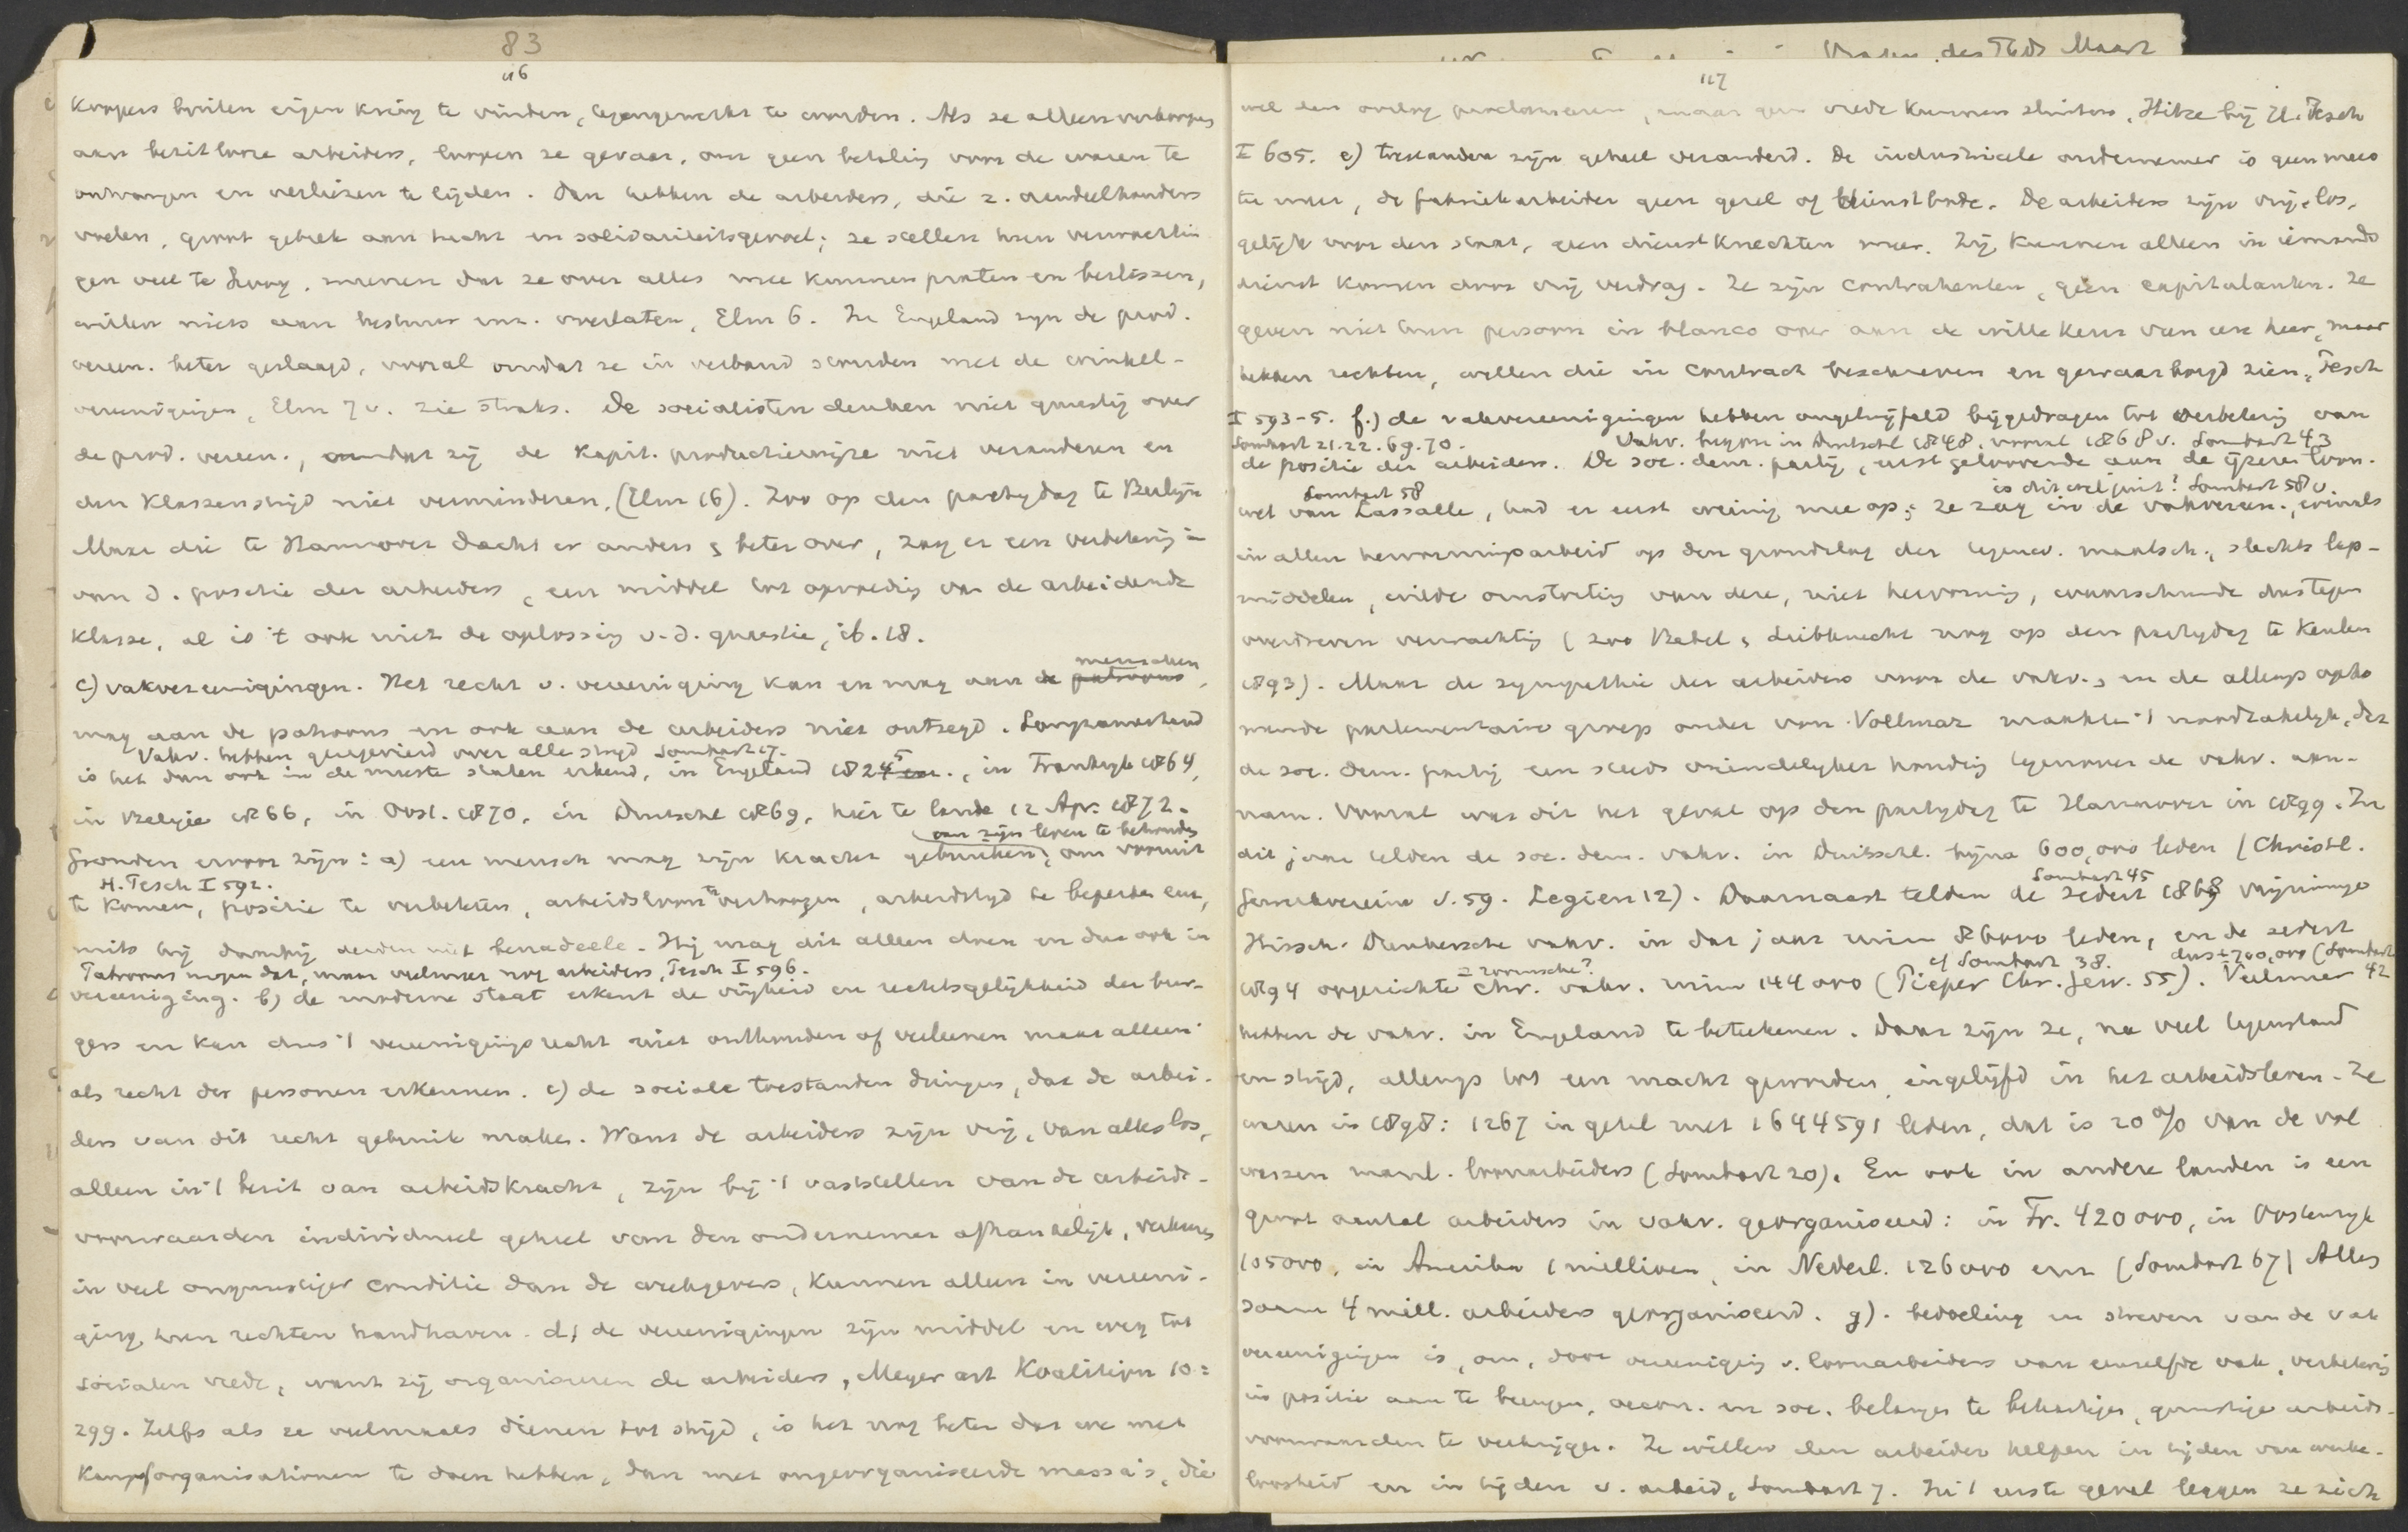 83
116
koopers buiten eigen kring te vinden, tegengewerkt te worden. Als ze alleen verkoopen
aan bezitlooze arbeiders, loopen ze gevaar, om geen betaling voor de waren te
ontvangen en verliezen te lijden. Dan hebben de arbeiders, die z. aandeelhouders
voelen, groot gebrek aan tucht en solidariteitsgevoel; ze stellen hun verwachtin
gen veel te hoog, meenen dat ze over alles mee kunnen praten en beslissen,
willen niets aan bestuur enz. overlaten, Elm 6. In Engeland zyn de prod.
vereen. beter geslaagd, vooral omdat ze in verband stonden met de winkel-
vereenigingen, Elm 7 v. zie straks. De socialisten denken niet gunstig over
de prod. vereen., omdat zij de kapit. productiewijze niet veranderen en
den klassenstrijd niet verminderen, (Elm 16). Zoo op den partydag te Berlijn
Maar die te Hannover dacht er anders & beter over, zag er een verbetering in
van d. positie der arbeiders, een middel tot opvoeding van de arbeidende
klasse, al is 't ook niet de oplossing v.d. quaestie, ib. 18.
menschen
c) vakvereenigingen. Het recht v. vereeniging kan en mag aan de patroons,
mag aan de patroons en ook aan de arbeiders niet ontzegd. Langzamerhand
Vakv. hebben gezegevierd over alle stryd Sombart 17.
is het dan ook in de meeste staten erkend, in Engeland 1824 5 , in Frankryk 1864,
in Belgie 1866, in Oost. 1870, in Duitschl 1869, hier te lande 12 Apr. 1872.
om zijn leven te behouden
Gronden ervoor zijn: a) een mensch mag zijn kracht gebruiken, om vooruit
H. Pesch I 592.
te komen, positie te verbeteren, arbeidsloon te verhoogen, arbeidstyd te beperken enz,
mits hij daarbij derden niet benadeele. Hij mag dit alleen doen en dus ook in
Patroons mogen dat, maar veelmeer nog arbeiders, Pesch I 596.
vereeniging. b) de moderne staat erkent de vrijheid en rechtsgelijkheid der bur-
gers en kan dus 't vereenigingsrecht niet onthouden of verleenen maar alleen
als recht der personen erkennen. c) de sociale toestanden dringen, dat de arbei-
ders van dit recht gebruik maken. Want de arbeiders zijn vrij, van alles los,
alleen in 't bezit van arbeidskracht, zijn bij 't vaststellen van de arbeids-
voorwaarden individueel geheel van den ondernemer afhankelijk, verkeeren
in veel ongunstiger conditie dan de werkgevers, kunnen alleen in vereeni-
ging hun rechten handhaven. d) de vereenigingen zijn middel en weg tot
socialen vrede, want zij organiseeren de arbeiders, Meyer art Koalition 10:
299. Zelfs als ze veelmaals dienen tot strijd, is het nog beter dat we met
Kampforganisationen te doen hebben, dan met ongeorganiseerde massa's, die
117
wel den oorlog proclameeren, maar geen vrede kunnen sluiten, Hitze bij H. Pesch
I 605. e) toestanden zijn geheel veranderd. De industrieele ondernemer is geen mees
ter meer, de fabriekarbeider geen gezel of dienstbode. De arbeiders zijn vrij, los,
gelijk voor den staat, geen dienstknechten meer. Zij kunnen alleen in iemands
dienst komen door vrij verdrag. Ze zijn contrahenten, geen capitulanten. Ze
geven niet hun persoon in blanco over aan de willekeur van een heer, maar
hebben rechten, willen die in contract beschreven en gewaarborgd zien, Pesch
I 593-5. f.) de vakvereenigingen hebben ongetwijfeld bijgedragen tot verbetering van
Sombart 21.22.69.70. Vakv. begon in Duitschl 1848, vooral 1868 v. Sombart 43
de positie der arbeiders. De soc. dem. partij, eerst geloovende aan de ijzeren loon-
Sombart 58 is dit wel juist? Sombart 58 v
wet van Lassalle, had er eerst weinig mee op; ze zag in de vakvereen., evenals
in allen hervormingsarbeid op den grondslag der tegenw. maatsch., slechts lap-
middelen, wilde omstorting van deze, niet hervorming, waarschuwde dus tegen
overdreven verwachting (zoo Bebel & Liebknecht nog op den partydag te Keulen
1893). Maar de sympathie der arbeiders voor de vakv., en de allengs opko
mende parlementaire groep onder von Vollmar maakte 't noodzakelyk, dat
de soc. dem. partij een steeds vriendelyker houding tegenover de vakv. aan-
nam. Vooral was dit het geval op den partydag te Hannover in 1899. In
dit jaar telden de soc. dem. vakv. in Duitschl. bijna 600,000 leden (Christl.
Sombart 45
Gewerkvereine v. 59. Legien 12). Daarnaast telden de sedert 1868 vrijzinnige
Hirsch-Dunkersche vakv. in dat jaar ruim 86000 leden, en de sedert
= roomsche? cf Sombart 38. dus ± 700,000 (Sombart
1894 opgerichte chr. vakv. ruim 144 000 (Pieper Chr. Gew. 55). Veelmeer 42
hebben de vakv. in Engeland te beteekenen. Daar zijn ze, na veel tegenstand
en strijd, allengs tot een macht geworden, ingelijfd in het arbeidsleven. Ze
waren in 1898: 1267 in getal met 1644591 leden, dat is 20 % van de vol
wassen manl. loonarbeiders (Sombart 20). En ook in andere landen is een
groot aantal arbeiders in vakv. georganiseerd: in Fr. 420 000, in Oostenryk
105 000, in Amerika 1 millioen, in Nederl. 126 000 enz (Sombart 67) Alles
saam 4 mill. arbeiders georganiseerd. g). bedoeling en streven van de vak
vereenigingen is, om, door vereeniging v. loonarbeiders van eenzelfde vak, verbetering
in positie aan te brengen, oecon. en soc. belangen te behartigen, gunstige arbeids-
voorwaarden te verkrijgen. Ze willen den arbeider helpen in tijden van werke-
loosheid en in tijden v. arbeid, Sombart 7. In 't eerste geval leggen ze zich